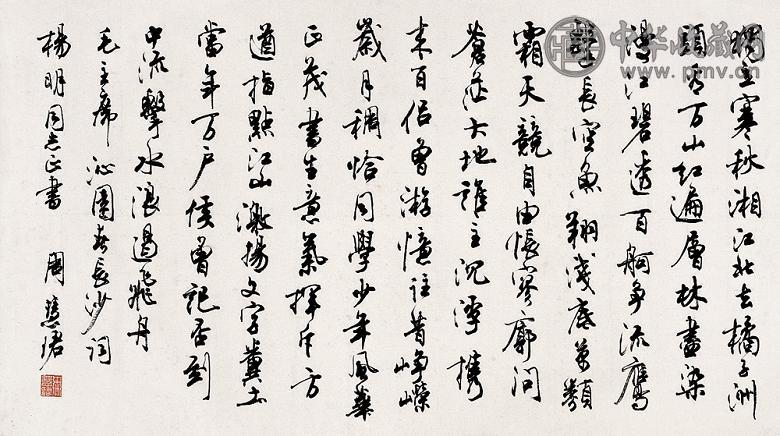 獨立寒秋湘江北去橘子洲
頭看万山红遍層林盡染
漫江碧透百舸争流鷹
擊長空魚翔淺底萬類
霜天競自由悵寥廓問
蒼茫大地誰主沉浮携
来百侣曾游憶往昔崢嶸
歲月稠恰同學少年風華
正茂書生意氣揮斥方
遒指點江山激揚文字糞土
當年万户侯曾記否到
中流擊水浪遏飛舟
毛主席沁園春長沙詞
楊明同志正書 周慧珺
中华收藏网
www.pmv.cn